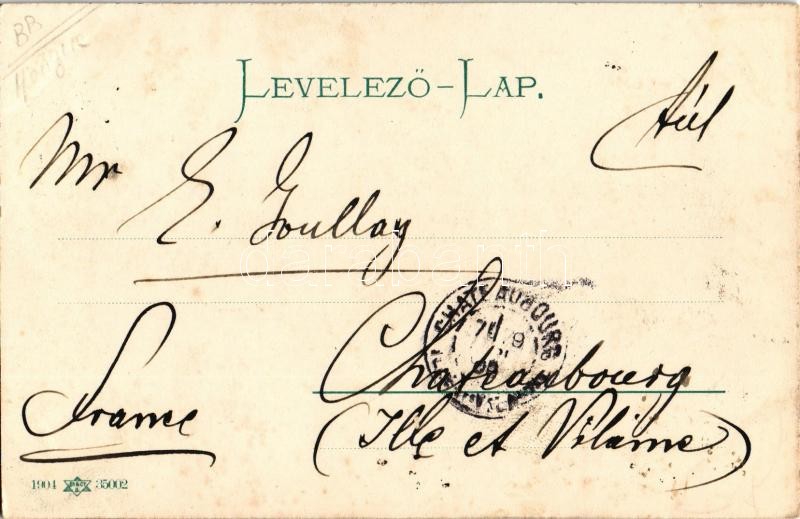 BB
LEVELEZŐ-LAP.
Mr E. Joullay
CHATEAUBOURG
Chateaubourg
(Ille et Vilaine)
France
1904 35002